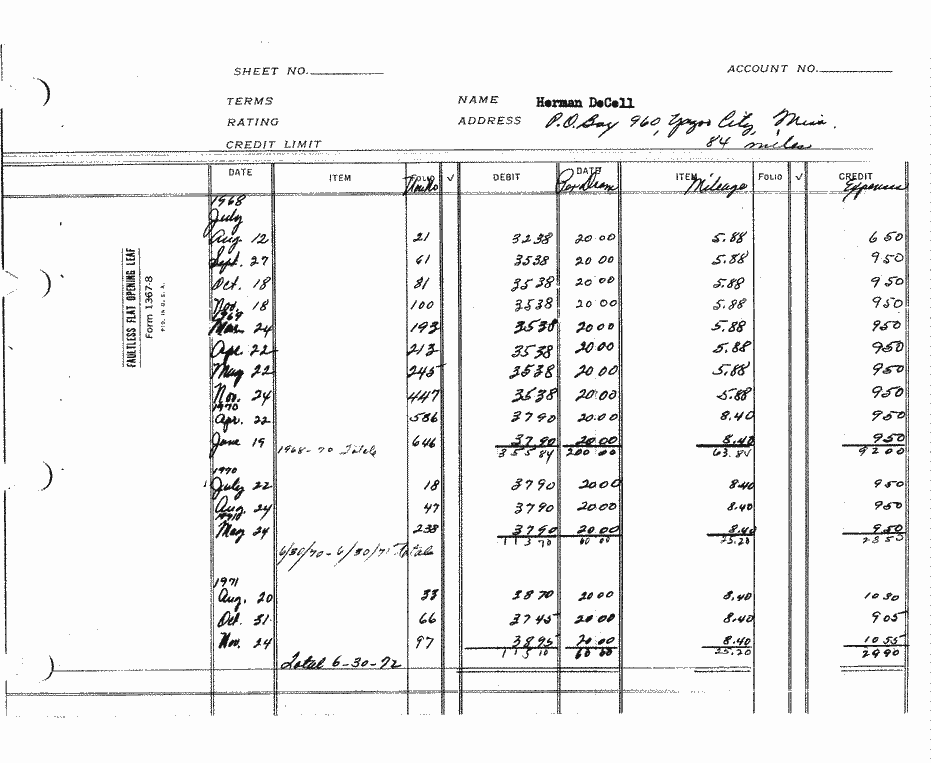 SHEET NO.
ACCOUNT NO.
TERMS NAME Herman DeCell
RATING ADDRESS P.O. Box 960, Yazoo City, Miss.
CREDIT LIMIT 84 miles
DATE ITEM FOLIO √ DEBIT DATE Per Diem ITEM Mileage FOLIO √ CREDIT Expenses
1968
July
Aug. 12 21 3238 20 00 5.88 6 50
Sept. 27 61 3538 20 00 5.88 9 50
Oct. 18 81 3538 20 00 5.88 9 50
Nov. 18 100 3538 20 00 5.88 9 50
1969
Mar. 24 193 3538 20 00 5.88 9 50
Apr. 22 213 3538 20 00 5.88 9 50
May 22 245 3538 20 00 5.88 9 50
Nov. 24 447 3538 20 00 5.88 9 50
1970
Apr. 22 586 3790 20 00 8.40 9 50
June 19 646 3790 20 00 8.40 9 50
1968-70 Totals 355 84 200 00 63.84 92 00
1970
July 22 18 3790 20 00 8.40 9 50
Aug. 24 47 3790 20 00 8.40 9 50
1971
May 24 233 3790 20 00 8.40 9.50
6/30/70-6/30/71 Totals 113 70 60 00 25.20 28 50
1971
Aug. 20 33 3870 20 00 8.40 10 30
Oct. 31 66 3745 20 00 8.40 9 05
Nov. 24 97 3895 20 00 8.40 10 55
Total 6-30-72 115 10 60 00 25.20 29 90
FAULTLESS FLAT OPENING LEAF
Form 1367-8
P'T'D. IN U.S.A.